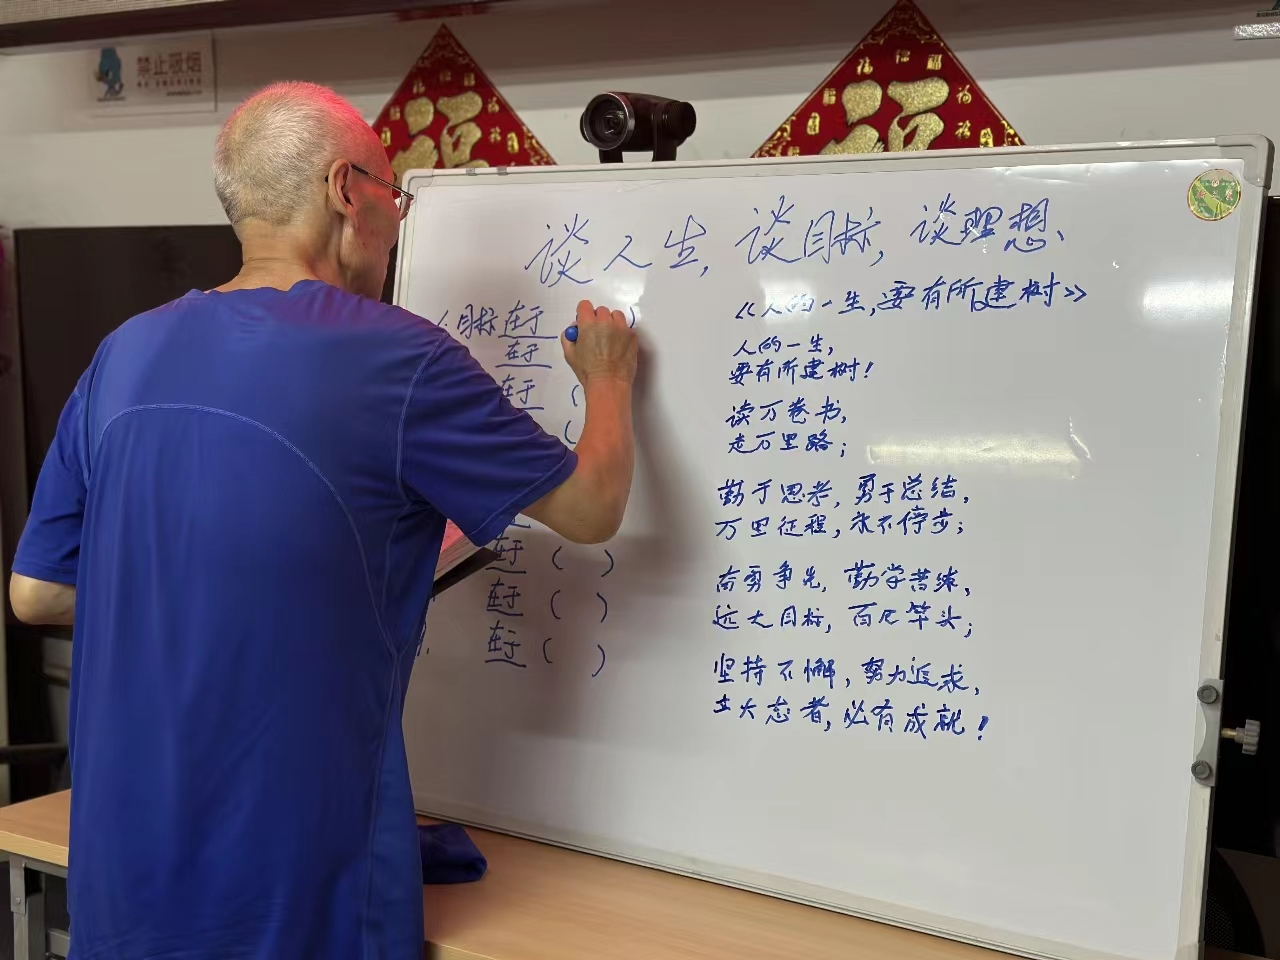 禁止吸烟
福
福
谈人生,谈目标,谈理想、
目标在于 )
在于
在于 (
(
在于 ( )
在于 ( )
在于 ( )
《人的一生,要有所建树》
人的一生,
要有所建树!
读万卷书,
走万里路;
勤于思考,勇于总结,
万里征程,永不停步;
奋勇争先,勤学苦练,
远大目标,百尺竿头;
坚持不懈,努力追求,
立大志者,必有成就!